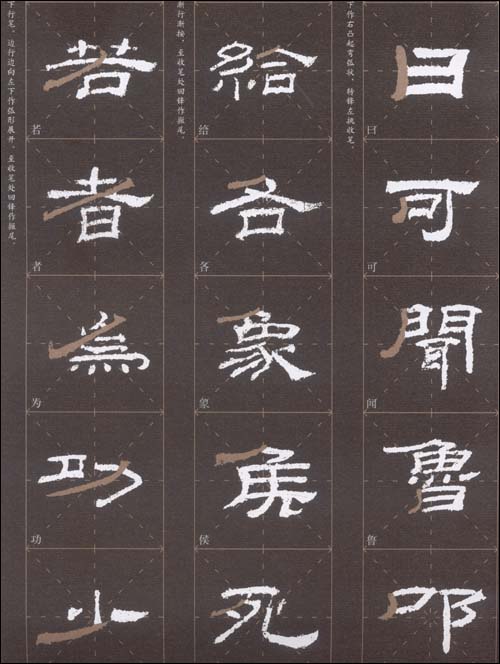 下作右凸起弯弧状，转锋左挑收笔。
曰
曰
可
可
聞
闻
魯
鲁
渐行渐按，至收笔处回锋作掘尾。
給
给
各
各
象
象
侯
侯
死
下行笔，边行边向左下作弧形展开，至收笔处回锋作掘尾
若
若
者
者
為
为
功
功
少